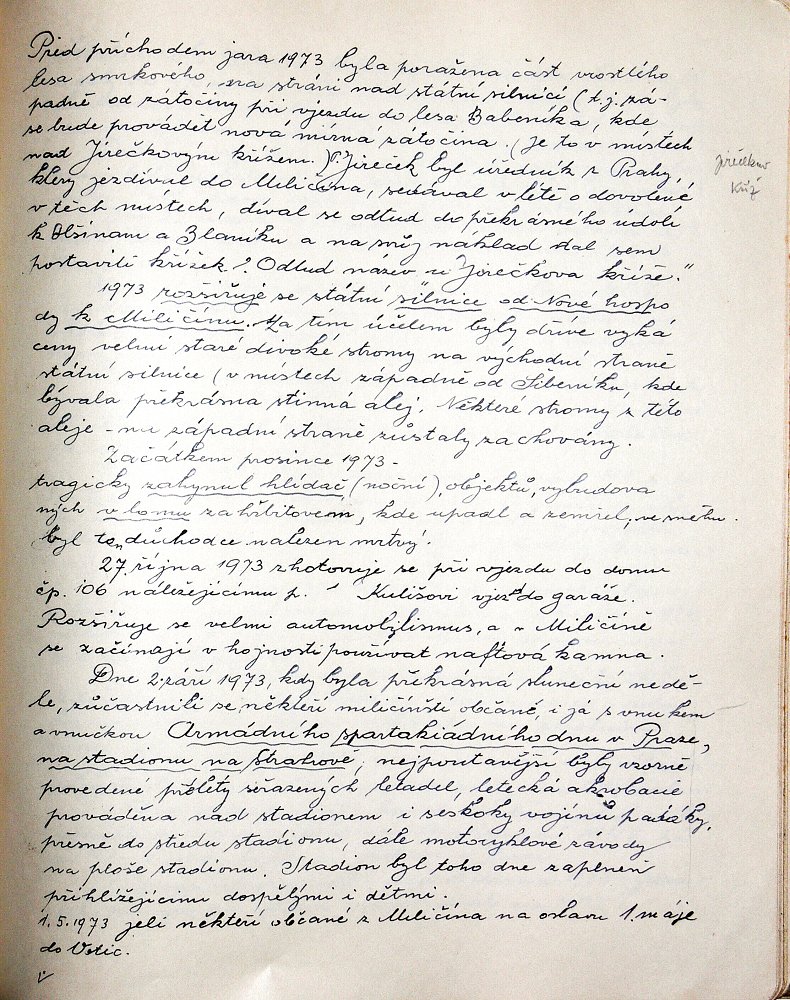 Před příchodem jara 1973 byla poražena část vzrostlého
lesa smrkového, na stráni nad státní silnicí (t.j. zá-
padně od zátočiny při vjezdu do lesa Babeníka, kde
se bude provádět nová mírná zátočina. (Je to v místech
nad Jírečkovým křížem.) P. Jireček byl úředník z Prahy,
který jezdíval do Miličína, sedával v létě o dovolené
v těch místech, díval se odtud do překrásného údolí
k Olšinam a Blaníku a na svůj náklad dal sem
postaviti křížek. Odtud název u "Jírečkova kříže."
Jírečkův
kříž
1973 rozšiřuje se státní silnice od Nové hospo
dy k Miličínu. Za tím účelem byly dříve vyká
ceny velmi staré divoké stromy na východní straně
státní silnice (v místech západně od Šiberníku, kde
bývala překrásná stinná alej. Některé stromy z této
aleje - na západní straně zůstaly zachovány.
Začátkem prosince 1973 -
tragicky zahynul hlídač (noční), objektů, vybudova
ných v lomu za hřbitovem, kde upadl a zemřel, ve sněhu.
byl ten důchodce nalezen mrtvý.
27. října 1973 zhotovuje se při vjezdu do domu
čp. 106 náležejícímu p. Kulišovi vjezd do garáže.
Rozšiřuje se velmi automobilismus, a v Miličíně
se začínají v hojnosti používat naftová kamna.
Dne 2. září 1973, kdy byla překrásná sluneční nedě-
le, zúčastnili se někteří miličínští občané, i já s vnukem
a vnučkou Armádního spartakiádního dnu v Praze,
na stadionu na Strahově, nejpoutavější byly vzorně
provedené přelety seřazených letadel, letecká akrobacie
prováděna nad stadionem i seskoky vojínů padáky,
přesně do středu stadionu, dále motocyklové závody
na ploše stadionu. Stadion byl toho dne zaplněn
přihlížejícími dospělými i dětmi.
1.5.1973 jeli někteří občané z Miličína na oslavu 1. máje
do Votic.